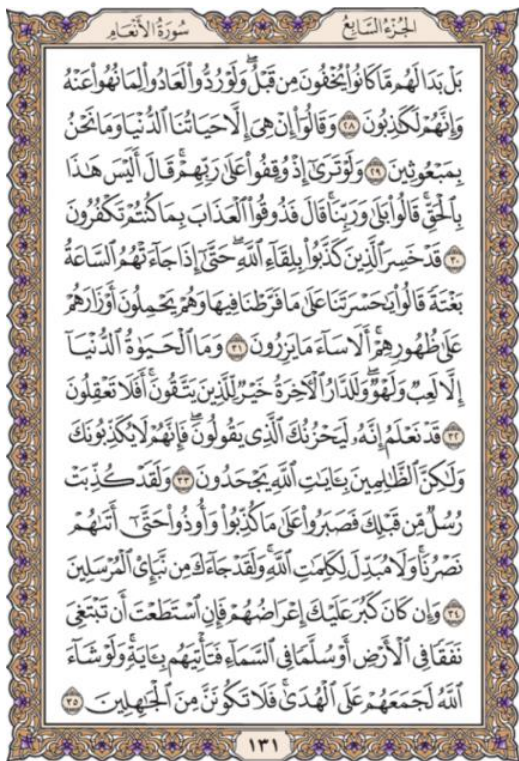 الجزء السابع
سورة الأنعام
بَلْ بَدَا لَهُم مَّا كَانُوا۟ يُخْفُونَ مِن قَبْلُ ۖ وَلَوْ رُدُّوا۟ لَعَادُوا۟ لِمَا نُهُوا۟ عَنْهُ
وَإِنَّهُمْ لَكَٰذِبُونَ ٢٨ وَقَالُوٓا۟ إِنْ هِىَ إِلَّا حَيَاتُنَا ٱلدُّنْيَا وَمَا نَحْنُ
بِمَبْعُوثِينَ ٢٩ وَلَوْ تَرَىٰٓ إِذْ وُقِفُوا۟ عَلَىٰ رَبِّهِمْ ۚ قَالَ أَلَيْسَ هَٰذَا
بِٱلْحَقِّ ۚ قَالُوا۟ بَلَىٰ وَرَبِّنَا ۚ قَالَ فَذُوقُوا۟ ٱلْعَذَابَ بِمَا كُنتُمْ تَكْفُرُونَ
٣٠ قَدْ خَسِرَ ٱلَّذِينَ كَذَّبُوا۟ بِلِقَآءِ ٱللَّهِ ۖ حَتَّىٰٓ إِذَا جَآءَتْهُمُ ٱلسَّاعَةُ
بَغْتَةً قَالُوا۟ يَٰحَسْرَتَنَا عَلَىٰ مَا فَرَّطْنَا فِيهَا وَهُمْ يَحْمِلُونَ أَوْزَارَهُمْ
عَلَىٰ ظُهُورِهِمْ ۚ أَلَا سَآءَ مَا يَزِرُونَ ٣١ وَمَا ٱلْحَيَوٰةُ ٱلدُّنْيَآ
إِلَّا لَعِبٌ وَلَهْوٌ ۖ وَلَلدَّارُ ٱلْءَاخِرَةُ خَيْرٌ لِّلَّذِينَ يَتَّقُونَ ۗ أَفَلَا تَعْقِلُونَ
٣٢ قَدْ نَعْلَمُ إِنَّهُۥ لَيَحْزُنُكَ ٱلَّذِى يَقُولُونَ ۖ فَإِنَّهُمْ لَا يُكَذِّبُونَكَ
وَلَٰكِنَّ ٱلظَّٰلِمِينَ بِـَٔايَٰتِ ٱللَّهِ يَجْحَدُونَ ٣٣ وَلَقَدْ كُذِّبَتْ
رُسُلٌ مِّن قَبْلِكَ فَصَبَرُوا۟ عَلَىٰ مَا كُذِّبُوا۟ وَأُوذُوا۟ حَتَّىٰٓ أَتَىٰهُمْ
نَصْرُنَا ۚ وَلَا مُبَدِّلَ لِكَلِمَٰتِ ٱللَّهِ ۚ وَلَقَدْ جَآءَكَ مِن نَّبَإِى۟ ٱلْمُرْسَلِينَ
٣٤ وَإِن كَانَ كَبُرَ عَلَيْكَ إِعْرَاضُهُمْ فَإِنِ ٱسْتَطَعْتَ أَن تَبْتَغِىَ
نَفَقًا فِى ٱلْأَرْضِ أَوْ سُلَّمًا فِى ٱلسَّمَآءِ فَتَأْتِيَهُم بِـَٔايَةٍ ۚ وَلَوْ شَآءَ
ٱللَّهُ لَجَمَعَهُمْ عَلَى ٱلْهُدَىٰ ۚ فَلَا تَكُونَنَّ مِنَ ٱلْجَٰهِلِينَ ٣٥
١٣١